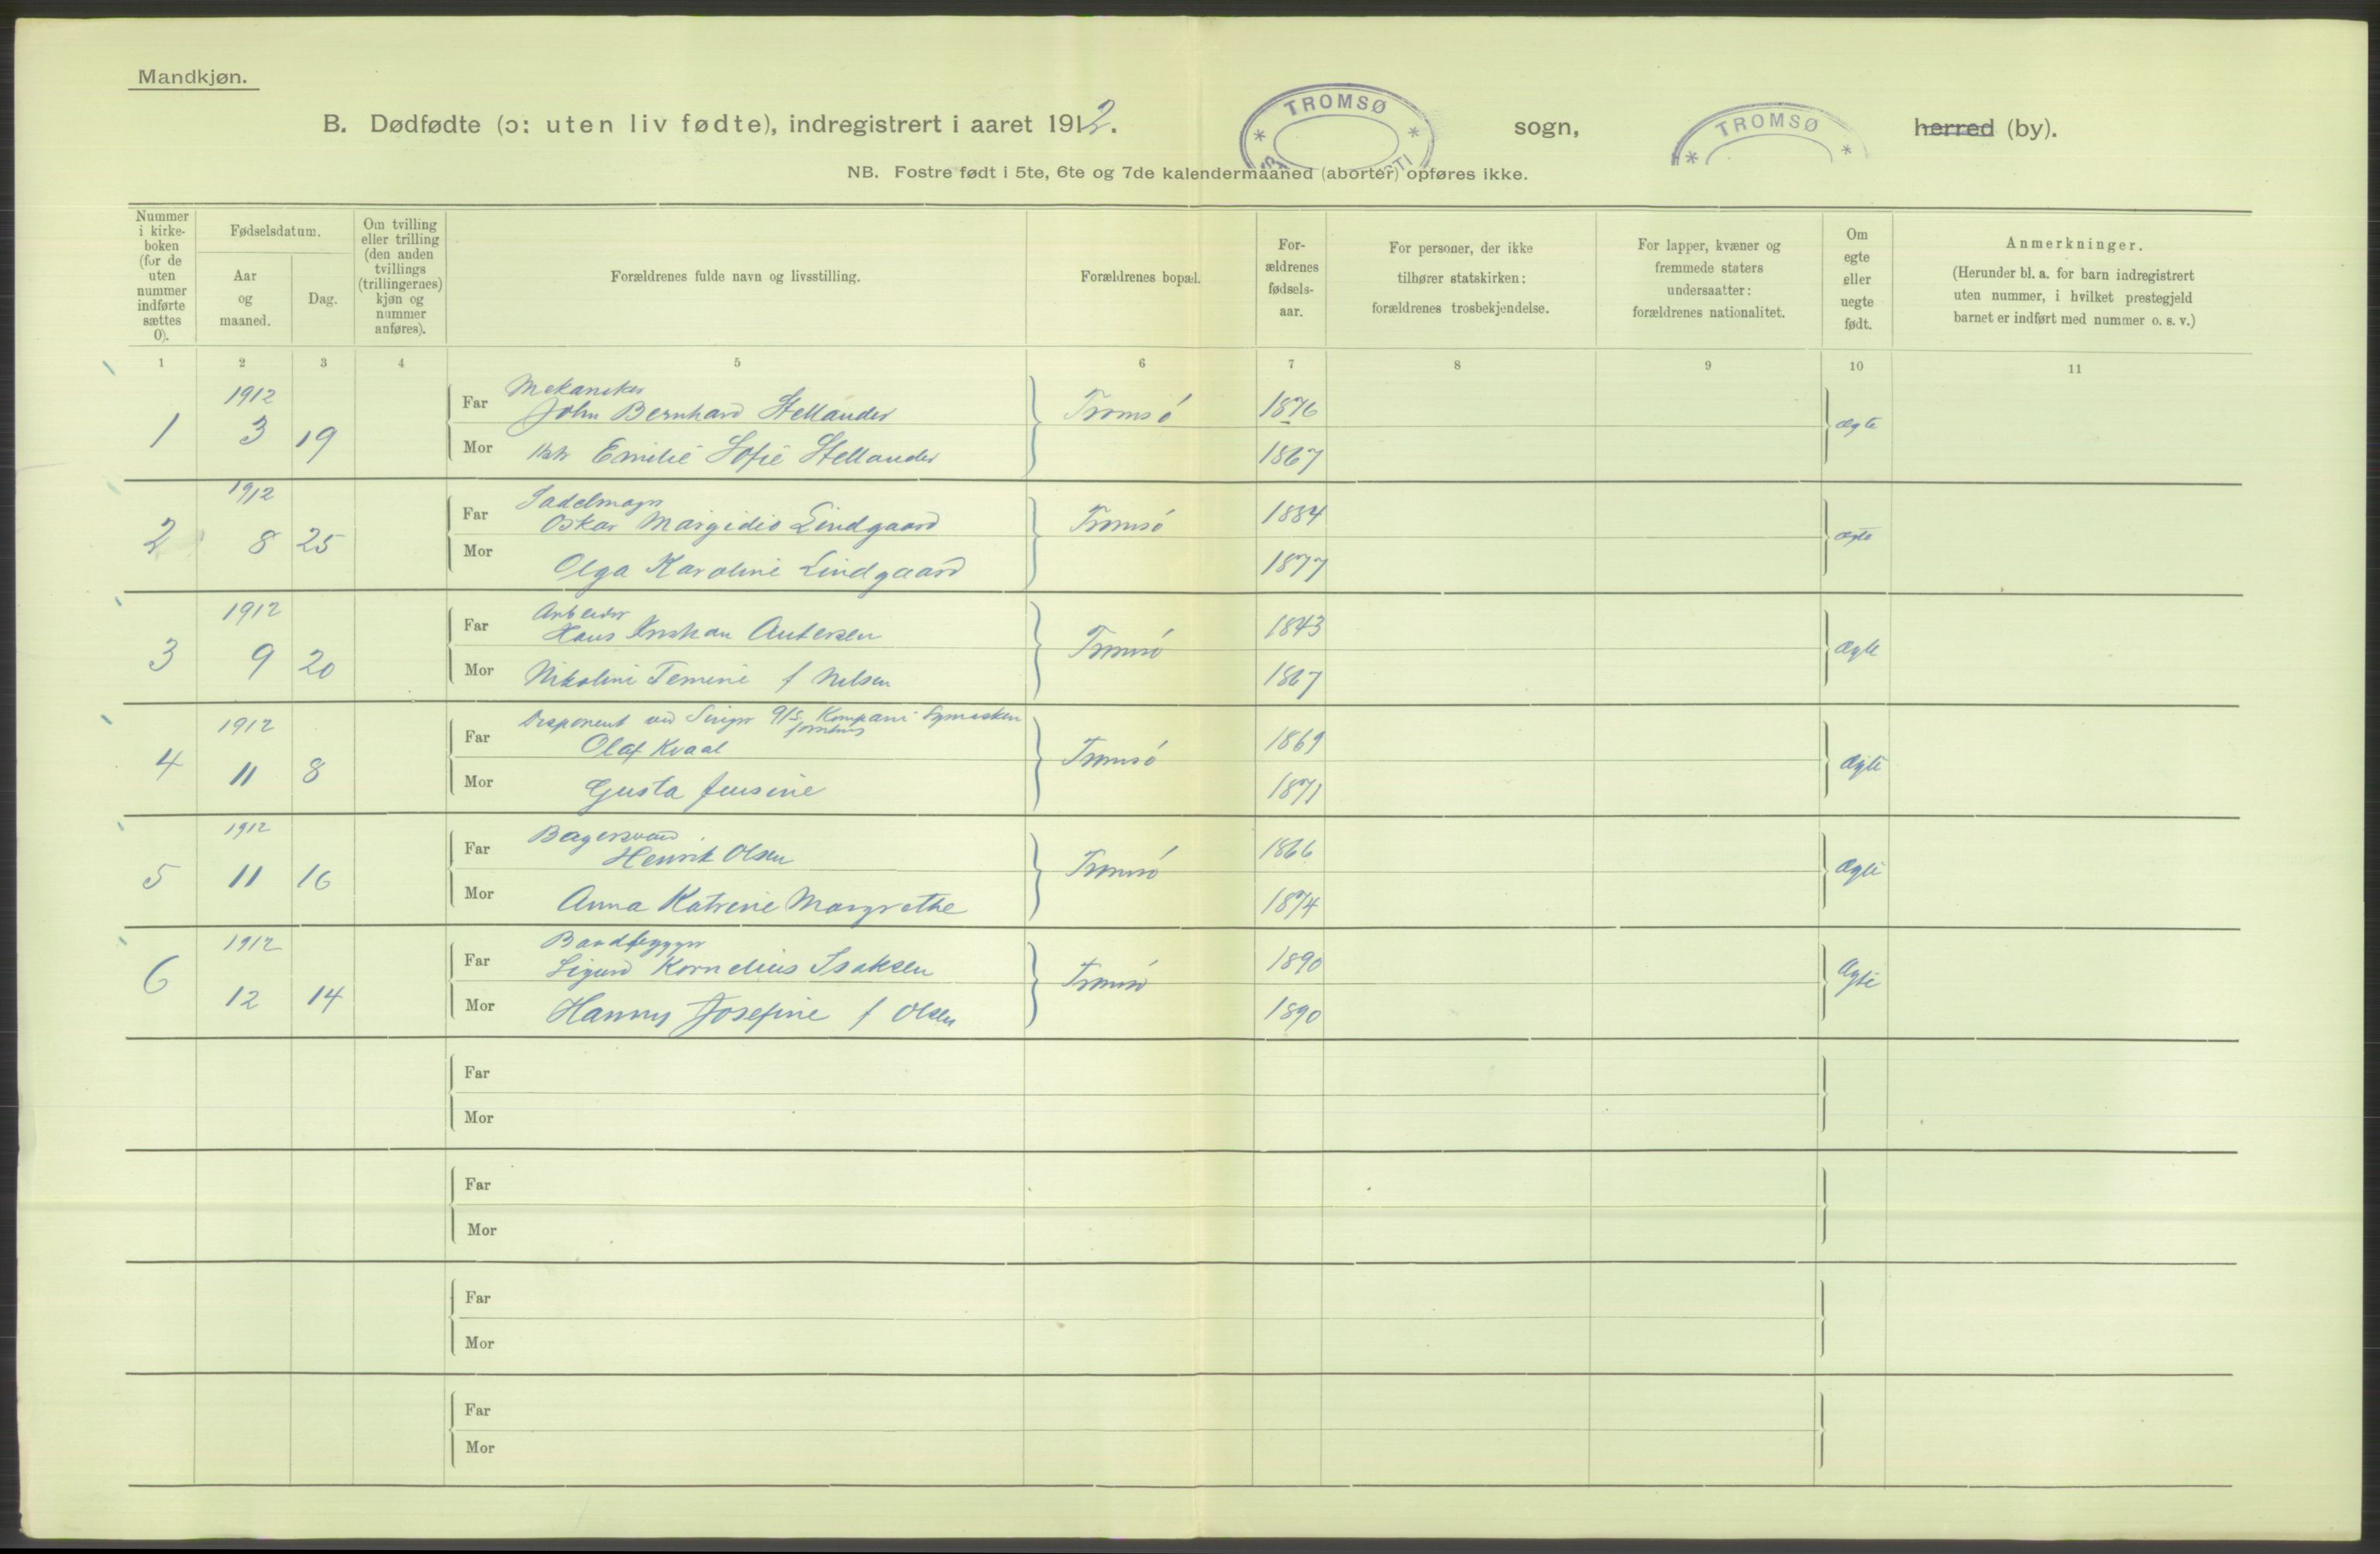 Mandkjøn.
B. Dødfødte (ɔ: uten liv fødte), indregistrert i aaret 1912.
TROMSØ
sogn,
TROMSØ
herred (by).
NB. Fostre født i 5te, 6te og 7de kalendermaaned (aborter) opføres ikke.
Nummer
i kirke-
boken
(for de
uten
nummer
indførte
sættes
0).
Fødselsdatum.
Aar
og
maaned.
Dag.
Om tvilling
eller trilling
(den anden
tvillings
(trillingernes)
kjøn og
nummer
anføres).
Forældrenes fulde navn og livsstilling.
Forældrenes bopæl.
For-
ældrenes
fødsels-
aar.
For personer, der ikke
tilhører statskirken:
forældrenes trosbekjendelse.
For lapper, kvæner og
fremmede staters
undersaatter:
forældrenes nationalitet.
Om
egte
eller
uegte
født.
Anmerkninger.
(Herunder bl. a. for barn indregistrert
uten nummer, i hvilket prestegjeld
barnet er indført med nummer o. s. v.)
1 2 3 4 5 6 7 8 9 10 11
1912
Mekaniker
1 3 19 Far John Bernhard Stellander Tromsø 1876 ægte
Mor Emilie Sofie Stellander 1867
1912
Sadelmagr
2 8 25 Far Oskar Margidio Lindgaard Tromsø 1884 ægte
Mor Olga Karoline Lindgaard 1877
1912
Arbeider
3 9 20 Far Hans Kristian Antersen Tromsø 1843 ægte
Mor Nikoline Temine f Nilsen 1867
1912
Disponent ved Singer Kompani Symaskin
4 11 8 Far Olaf Kvaal Tromsø 1869 ægte
Mor Gusta Jensine 1871
1912
Bagersvend
5 11 16 Far Henrik Olsen Tromsø 1866 ægte
Mor Anna Katrine Margrethe 1874
1912
Baadbygger
6 12 14 Far Sigurd Kornelius Isaksen Tromsø 1890 ægte
Mor Hanny Josefine f Olsen 1890
Far
Mor
Far
Mor
Far
Mor
Far
Mor